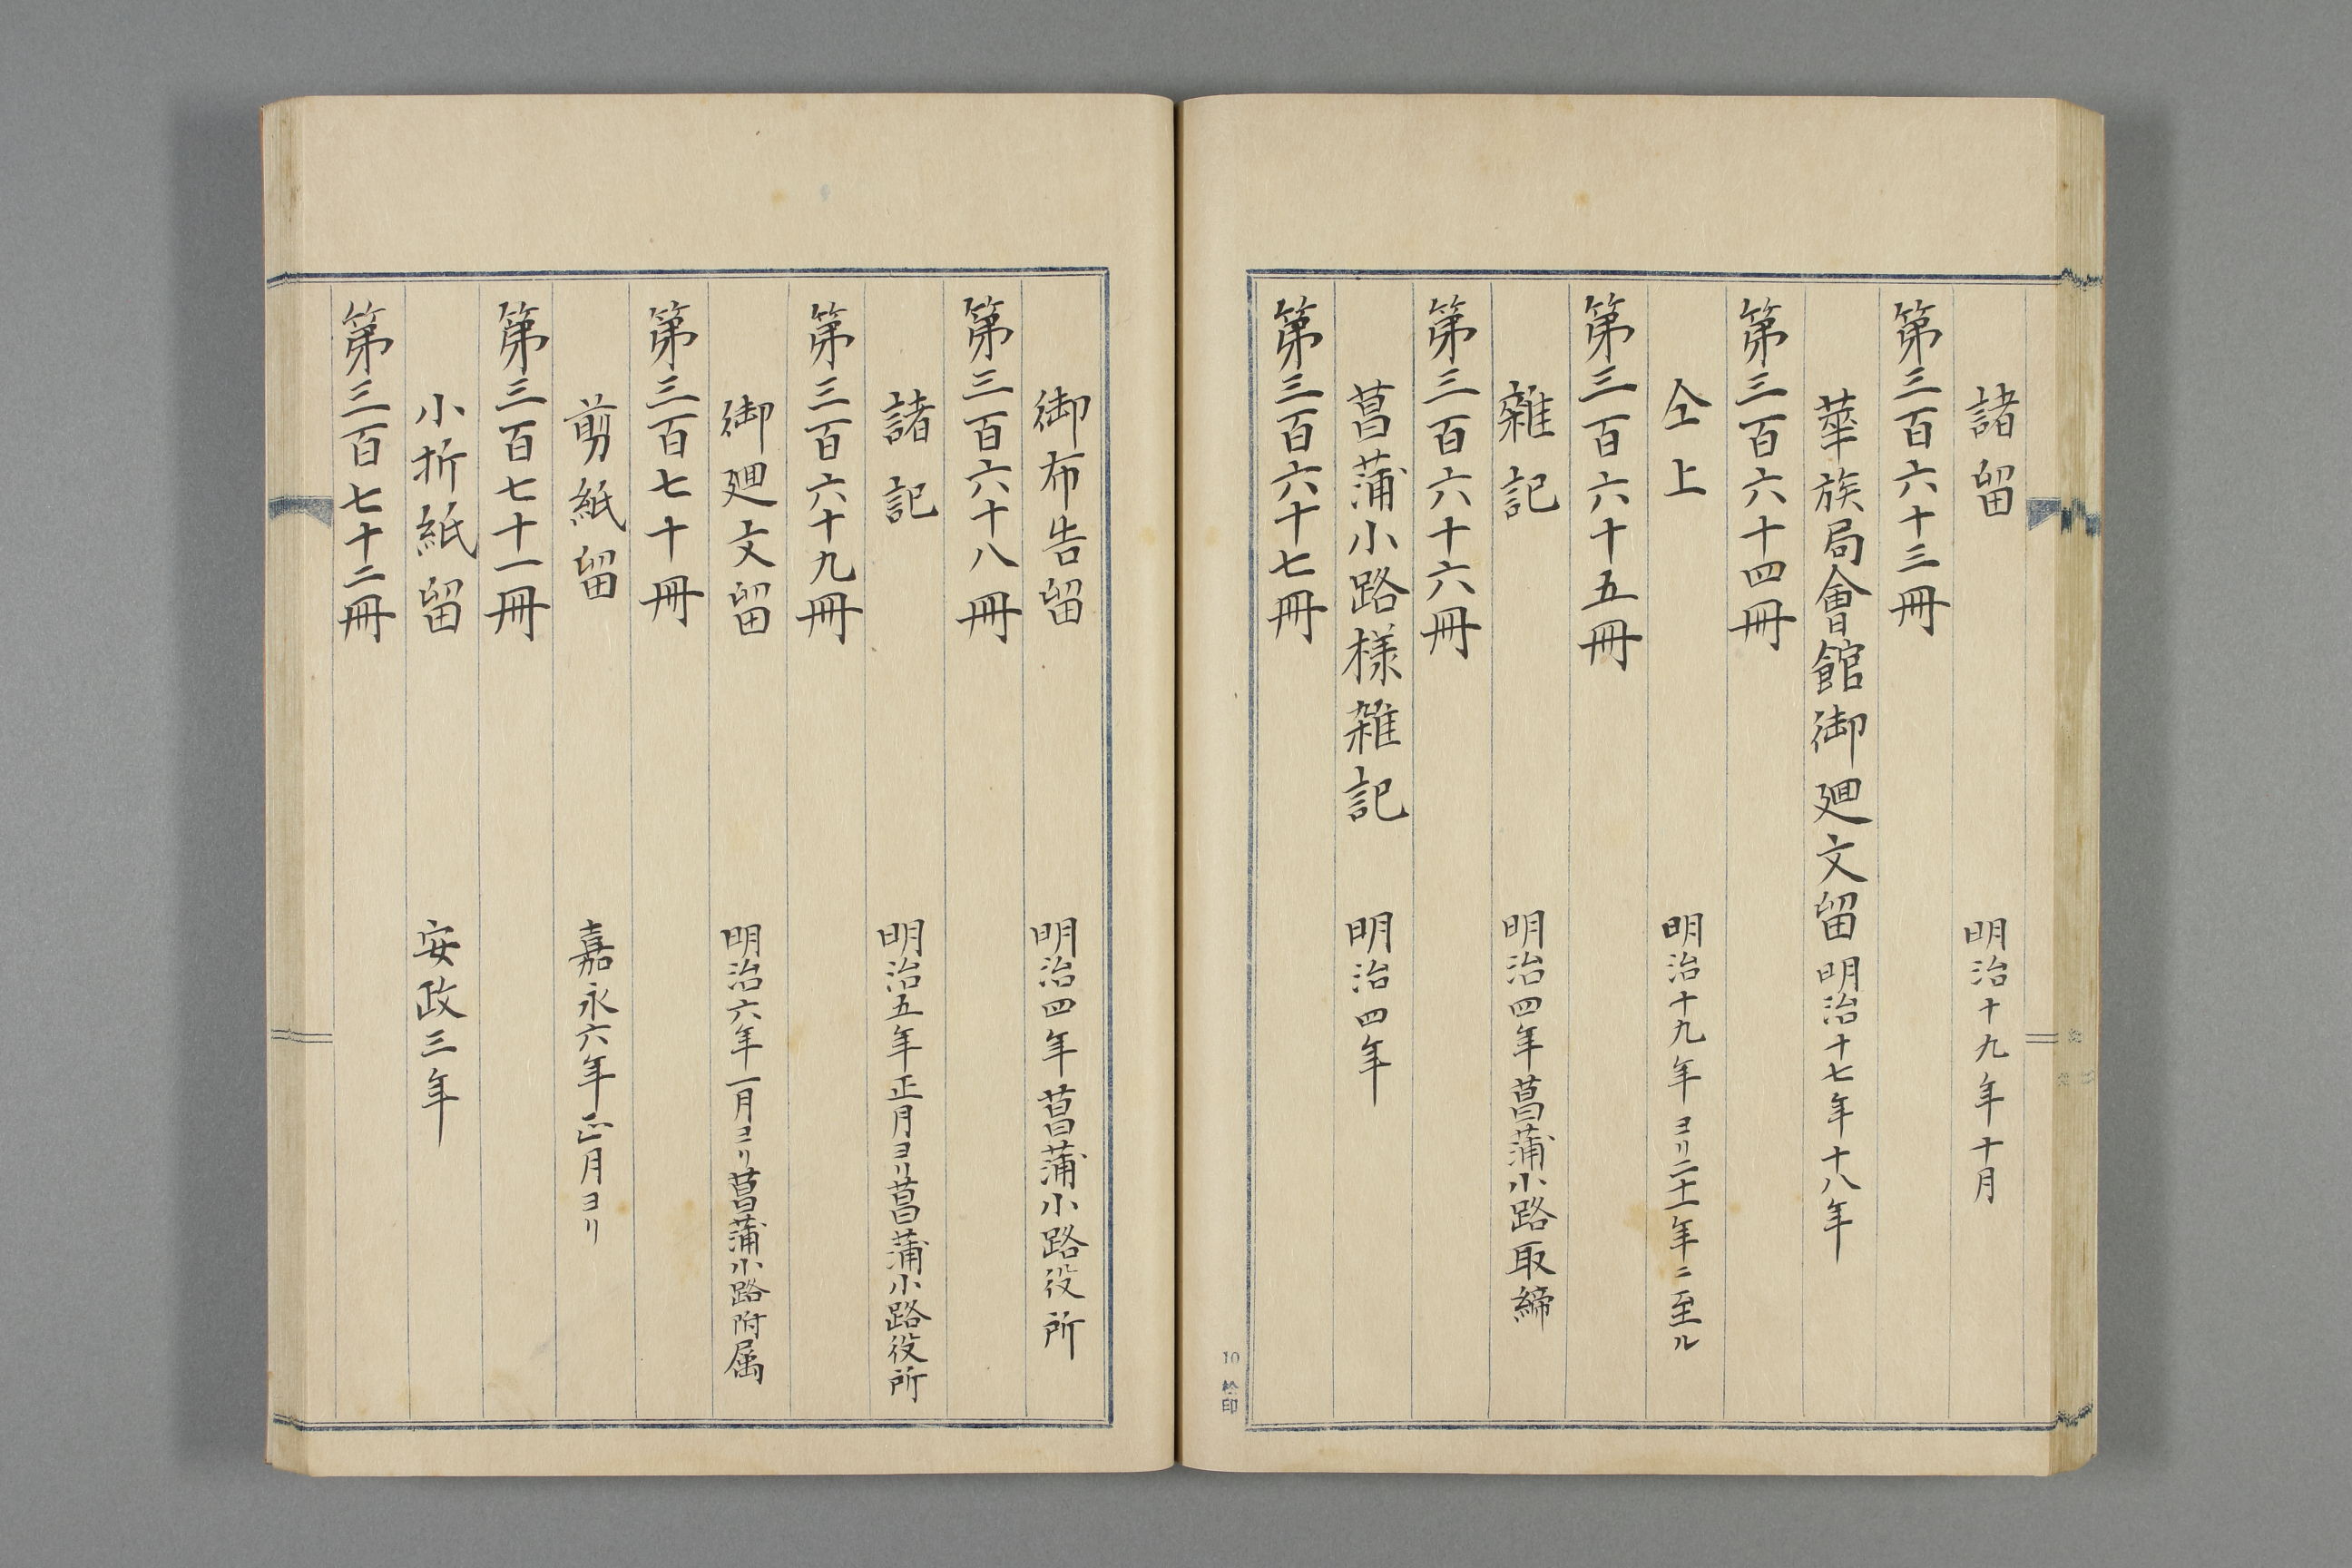 諸留　明治十九年十月
第三百六十三冊
華族局會館御廻文留　明治十七年十八年
第三百六十四冊
仝上　明治十九年ヨリ二十一年ニ至ル
第三百六十五冊
雜記　明治四年菖蒲小路取締
第三百六十六冊
菖蒲小路様雑記　明治四年
第三百六十七冊
御布告留　明治四年菖蒲小路役所
第三百六十八冊
諸記　明治五年正月ヨリ菖蒲小路役所
第三百六十九冊
御廻文留　明治六年一月ヨリ菖蒲小路附属
第三百七十冊
剪紙留　嘉永六年正月ヨリ
第三百七十一冊
小折紙留　安政三年
第三百七十二冊
10